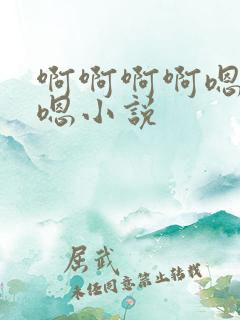 啊啊啊啊嗯
嗯小说
屈武
未经同意禁止转载